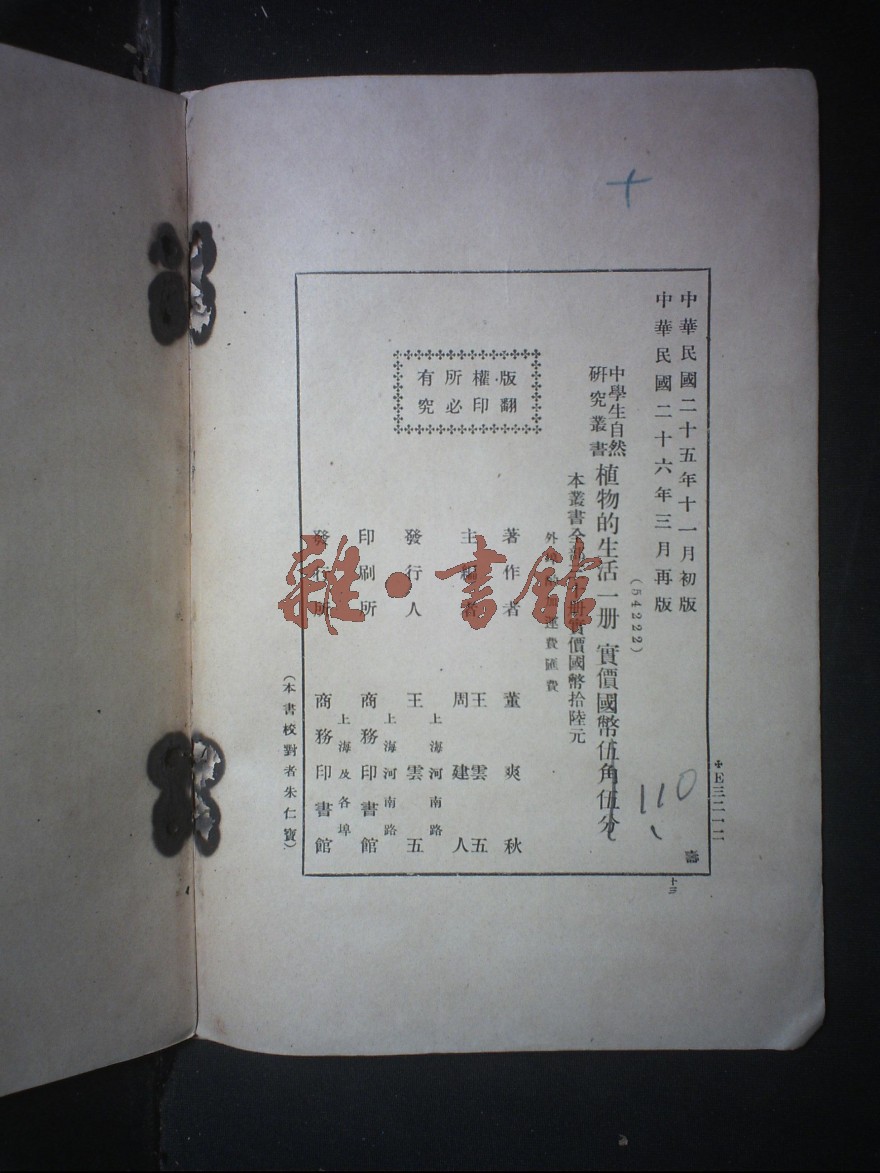 十
中華民國二十五年十一月初版
中華民國二十六年三月再版
(54222)
中學生自然研究叢書
植物的生活一册 實價國幣伍角伍分
110
本叢書全部 册實價國幣拾陸元
外埠 加運費匯費
版權所有
翻印必究
著作者 董爽秋
主編者 王雲五
周建人
發行人 王雲五
上海河南路
印刷所 商務印書館
上海河南路
發行所 商務印書館
上海及各埠
(本書校對者朱仁寶)
雜·書館
*E三二一二
十三